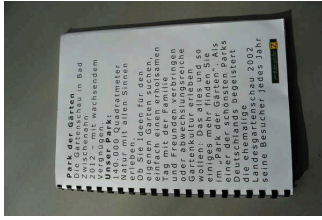 Park der Gärten
Die Gartenschau in Bad
Zwischenahn
2012 - mit wachsendem
Vergnügen
Unser Park:
140.000 Quadratmeter
Natur mit allen Sinnen
erleben.
Ob Sie Ideen für den
eigenen Garten suchen,
einfach einen erholsamen
Tag mit der Familie
und Freunden verbringen
oder abwechslungsreiche
Gartenkultur erleben
wollen: Das alles und so
einiges mehr finden Sie
im „Park der Gärten“. Als
einer der schönsten Parks
Deutschlands begeistert
die ehemalige
Landesgartenschau 2002
seine Besucher jedes Jahr